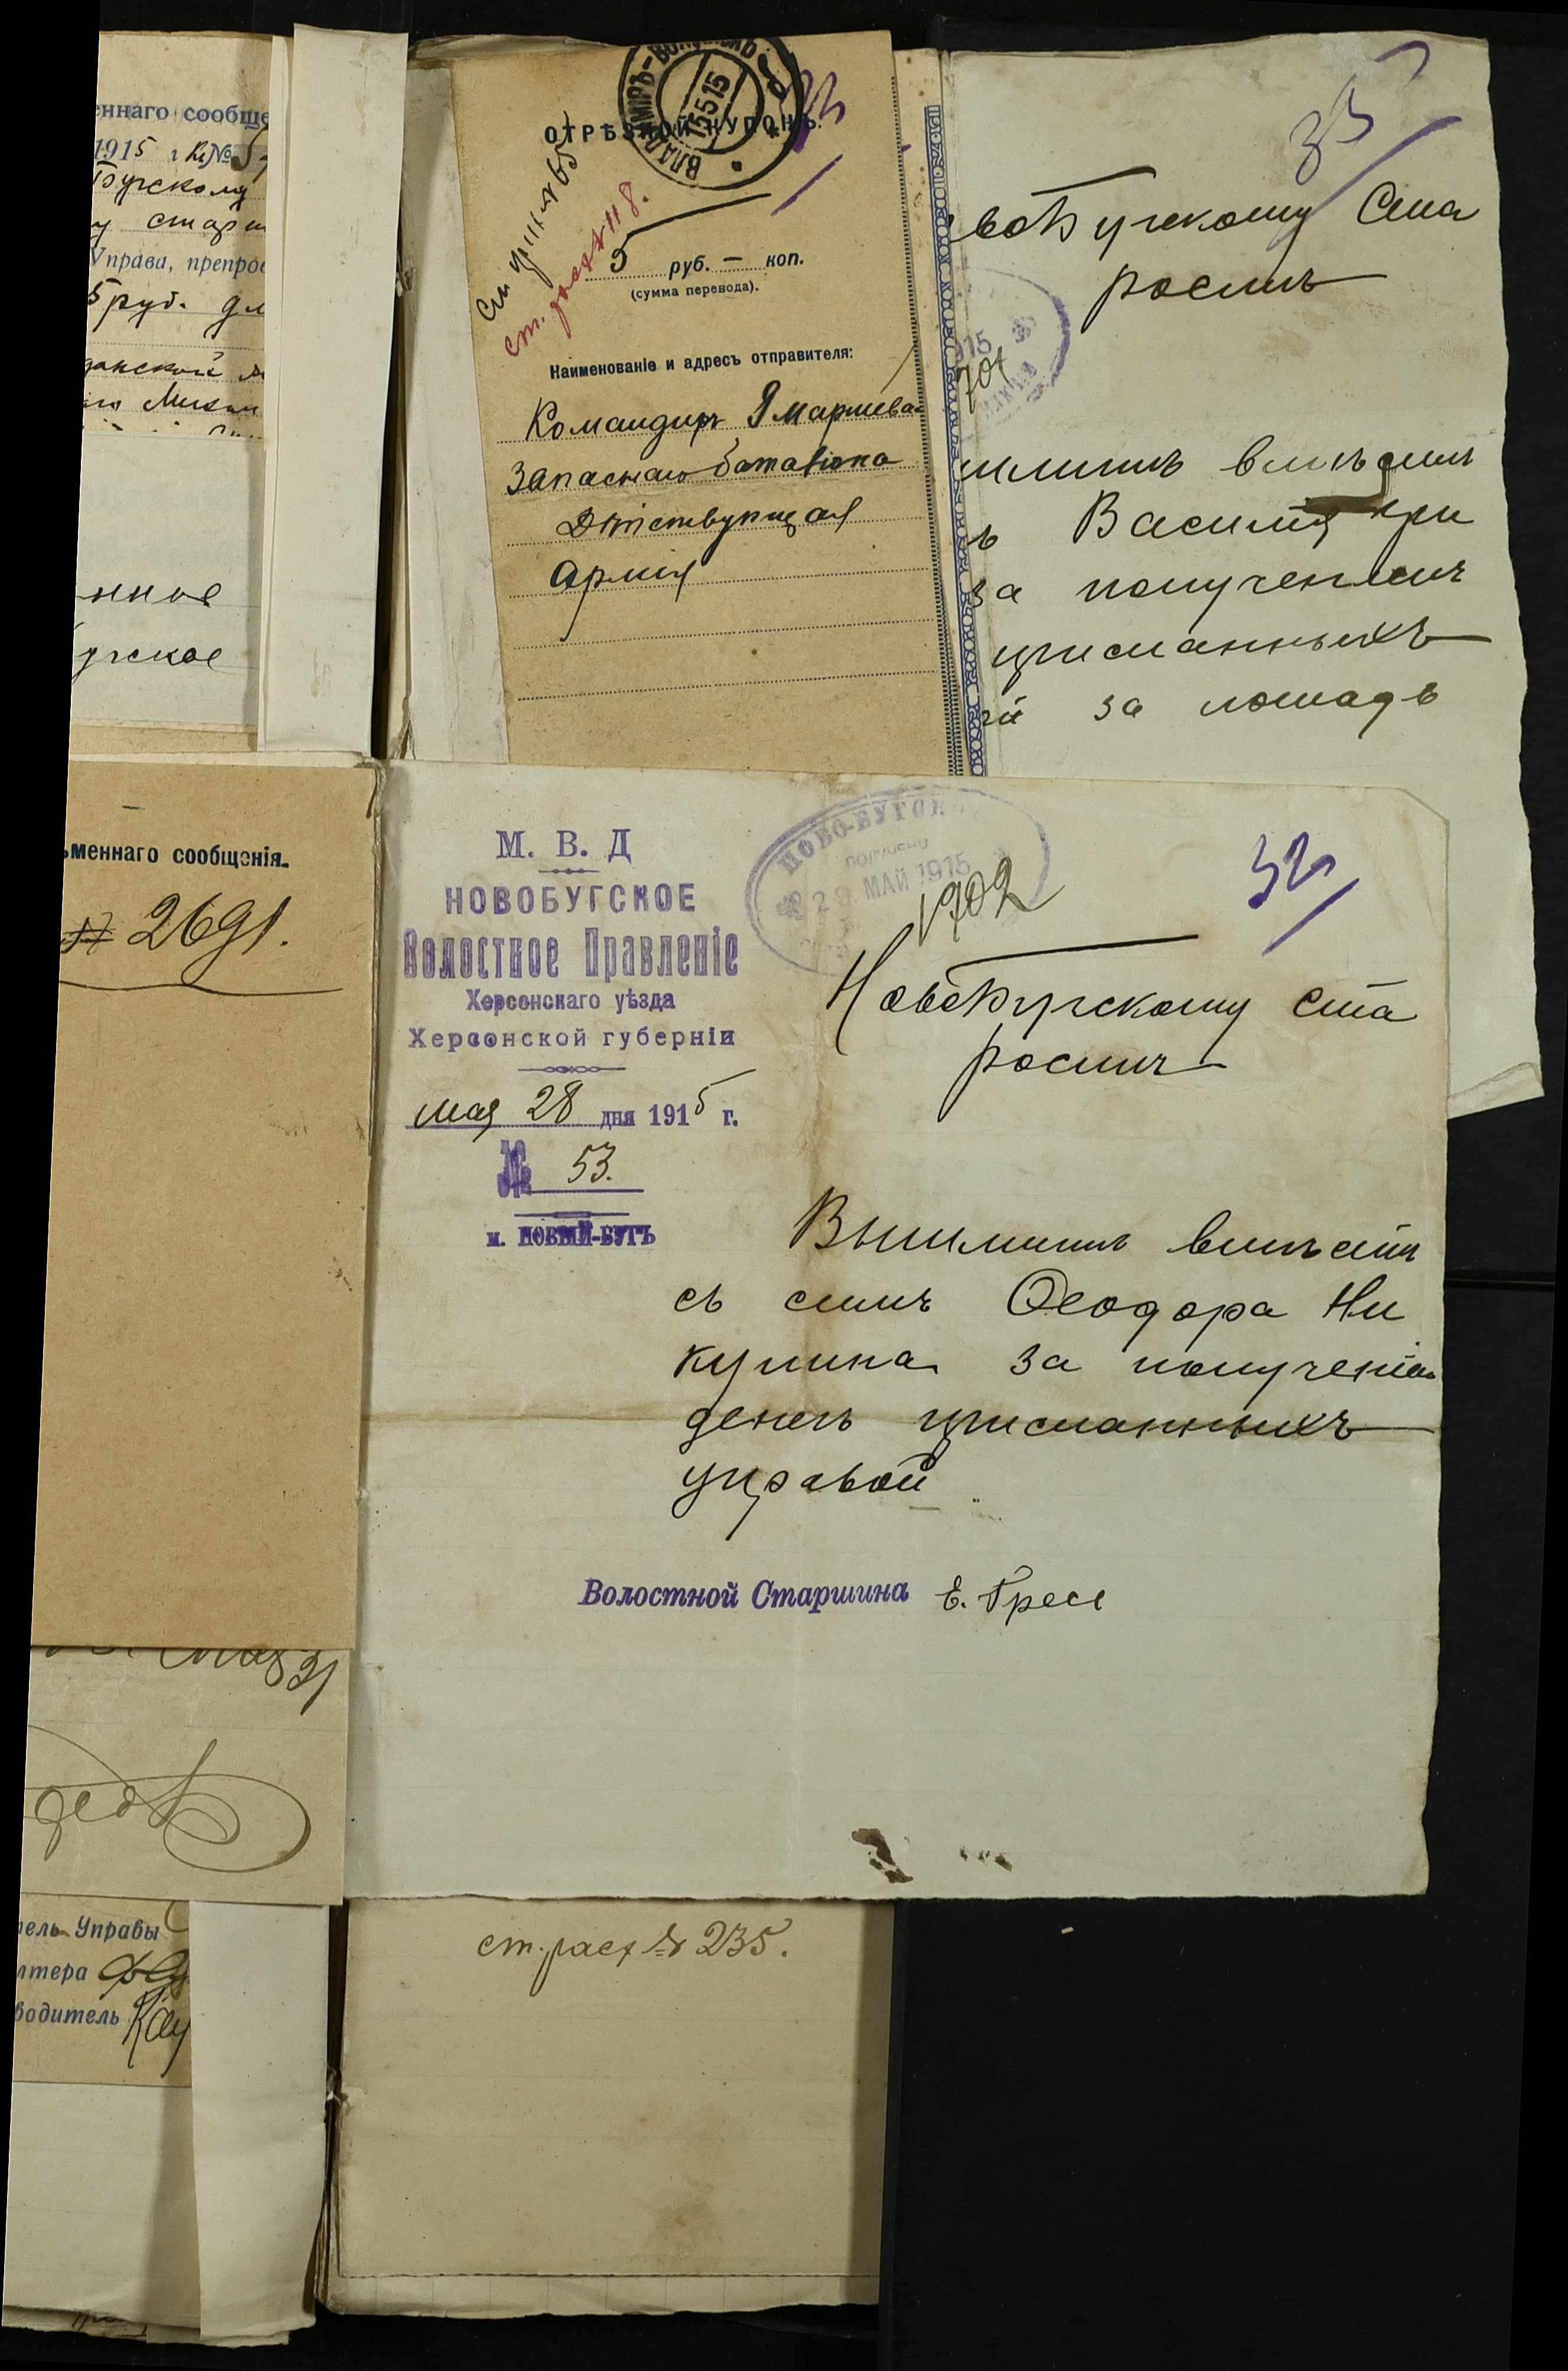 еннаго сообще
1915 г. №
Бугскому
у старш
Управа, препров
5 руб. дл
данской
го Михаи
нное
угское
ВЛАДИМІРЪ-ВОЛЫНСКЪ
15515
ОТРѢЗНОЙ КУПОНЪ.
33
ст. расх № 118.
5 руб. — коп.
(сумма перевода).
Наименованіе и адресъ отправителя:
Командиръ 9 маршева
Запаснаго баталіона
Дѣйствующая
Армія
35
вобугскому Ста
ростѣ
15
704
шлите вмѣстѣ
ъ Василія Кри
за полученіемъ
присланныхъ
ой за лошадь
ьменнаго сообщенія.
№ 2691.
М. В. Д
НОВОБУГСКОЕ
Волостное Правленіе
Херсонскаго уѣзда
Херсонской губерніи
мая 28 дня 1915 г.
№ 53.
м. НОВЫЙ-БУГЪ
НОВО-БУГСК
ПОЛУЧЕНО
29 МАЙ 1915
1702
32
Новобугскому ста
ростѣ
Вышлите вмѣстѣ
съ симъ Ѳеодора Ни
кулина за полученіемъ
денегъ присланныхъ
управой
Волостной Старшина Е. Гресс
мая 31
тель Управы
лтера
водитель
ст. расх № 235.